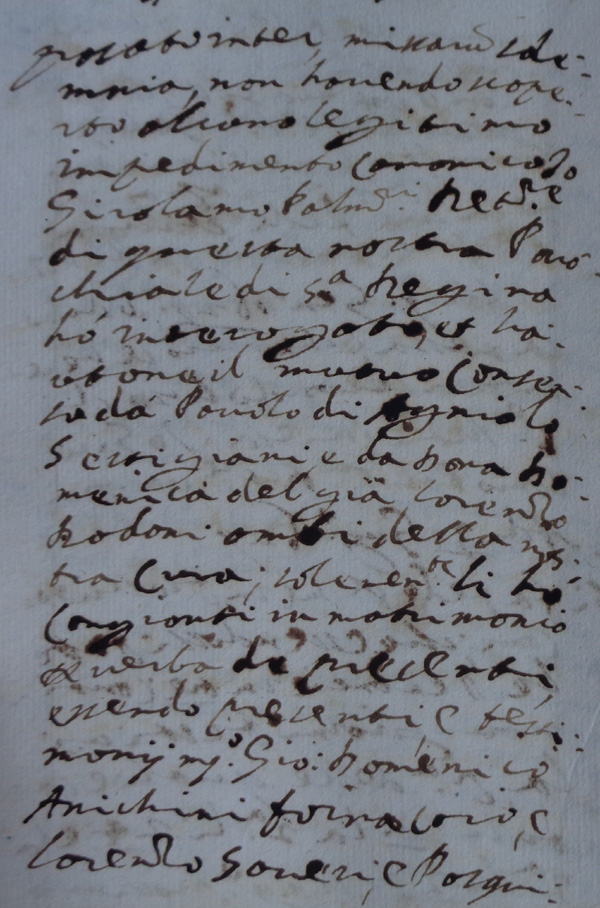 postato inter, missarũ sole-
mnia, non havendo scope-
rto alcuno legitimo
impedimento Canonico Jo
Girolamo Palmi Rett.re
di questa nostra Paro-
chiale di S.a Regina
hò interogato, et ha-
vutone il mutuo Consen-
so da Pavolo di Agniolo
Sestigiani e da Dona Do-
menica del già Lorenzo
Rodoni ambi della nos-
tra Cura, solenen.te li hò
Congionti in matrimonio
per verba de presenti
essendo presenti, e testi-
monij m.o Gio: Domenico
Anichini fornaciaio, e
Lorenzo Soveri, e Pasqui-